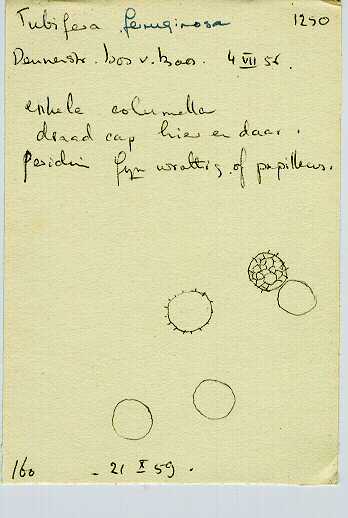 Tubifera ferruginosa 1250
Dennenstr. bos v. Baas. 4 VII 56.
enkele columella
draad cap hier en daar.
Peridium fyn wrattig of papilleus.
160 - 21 X 59.